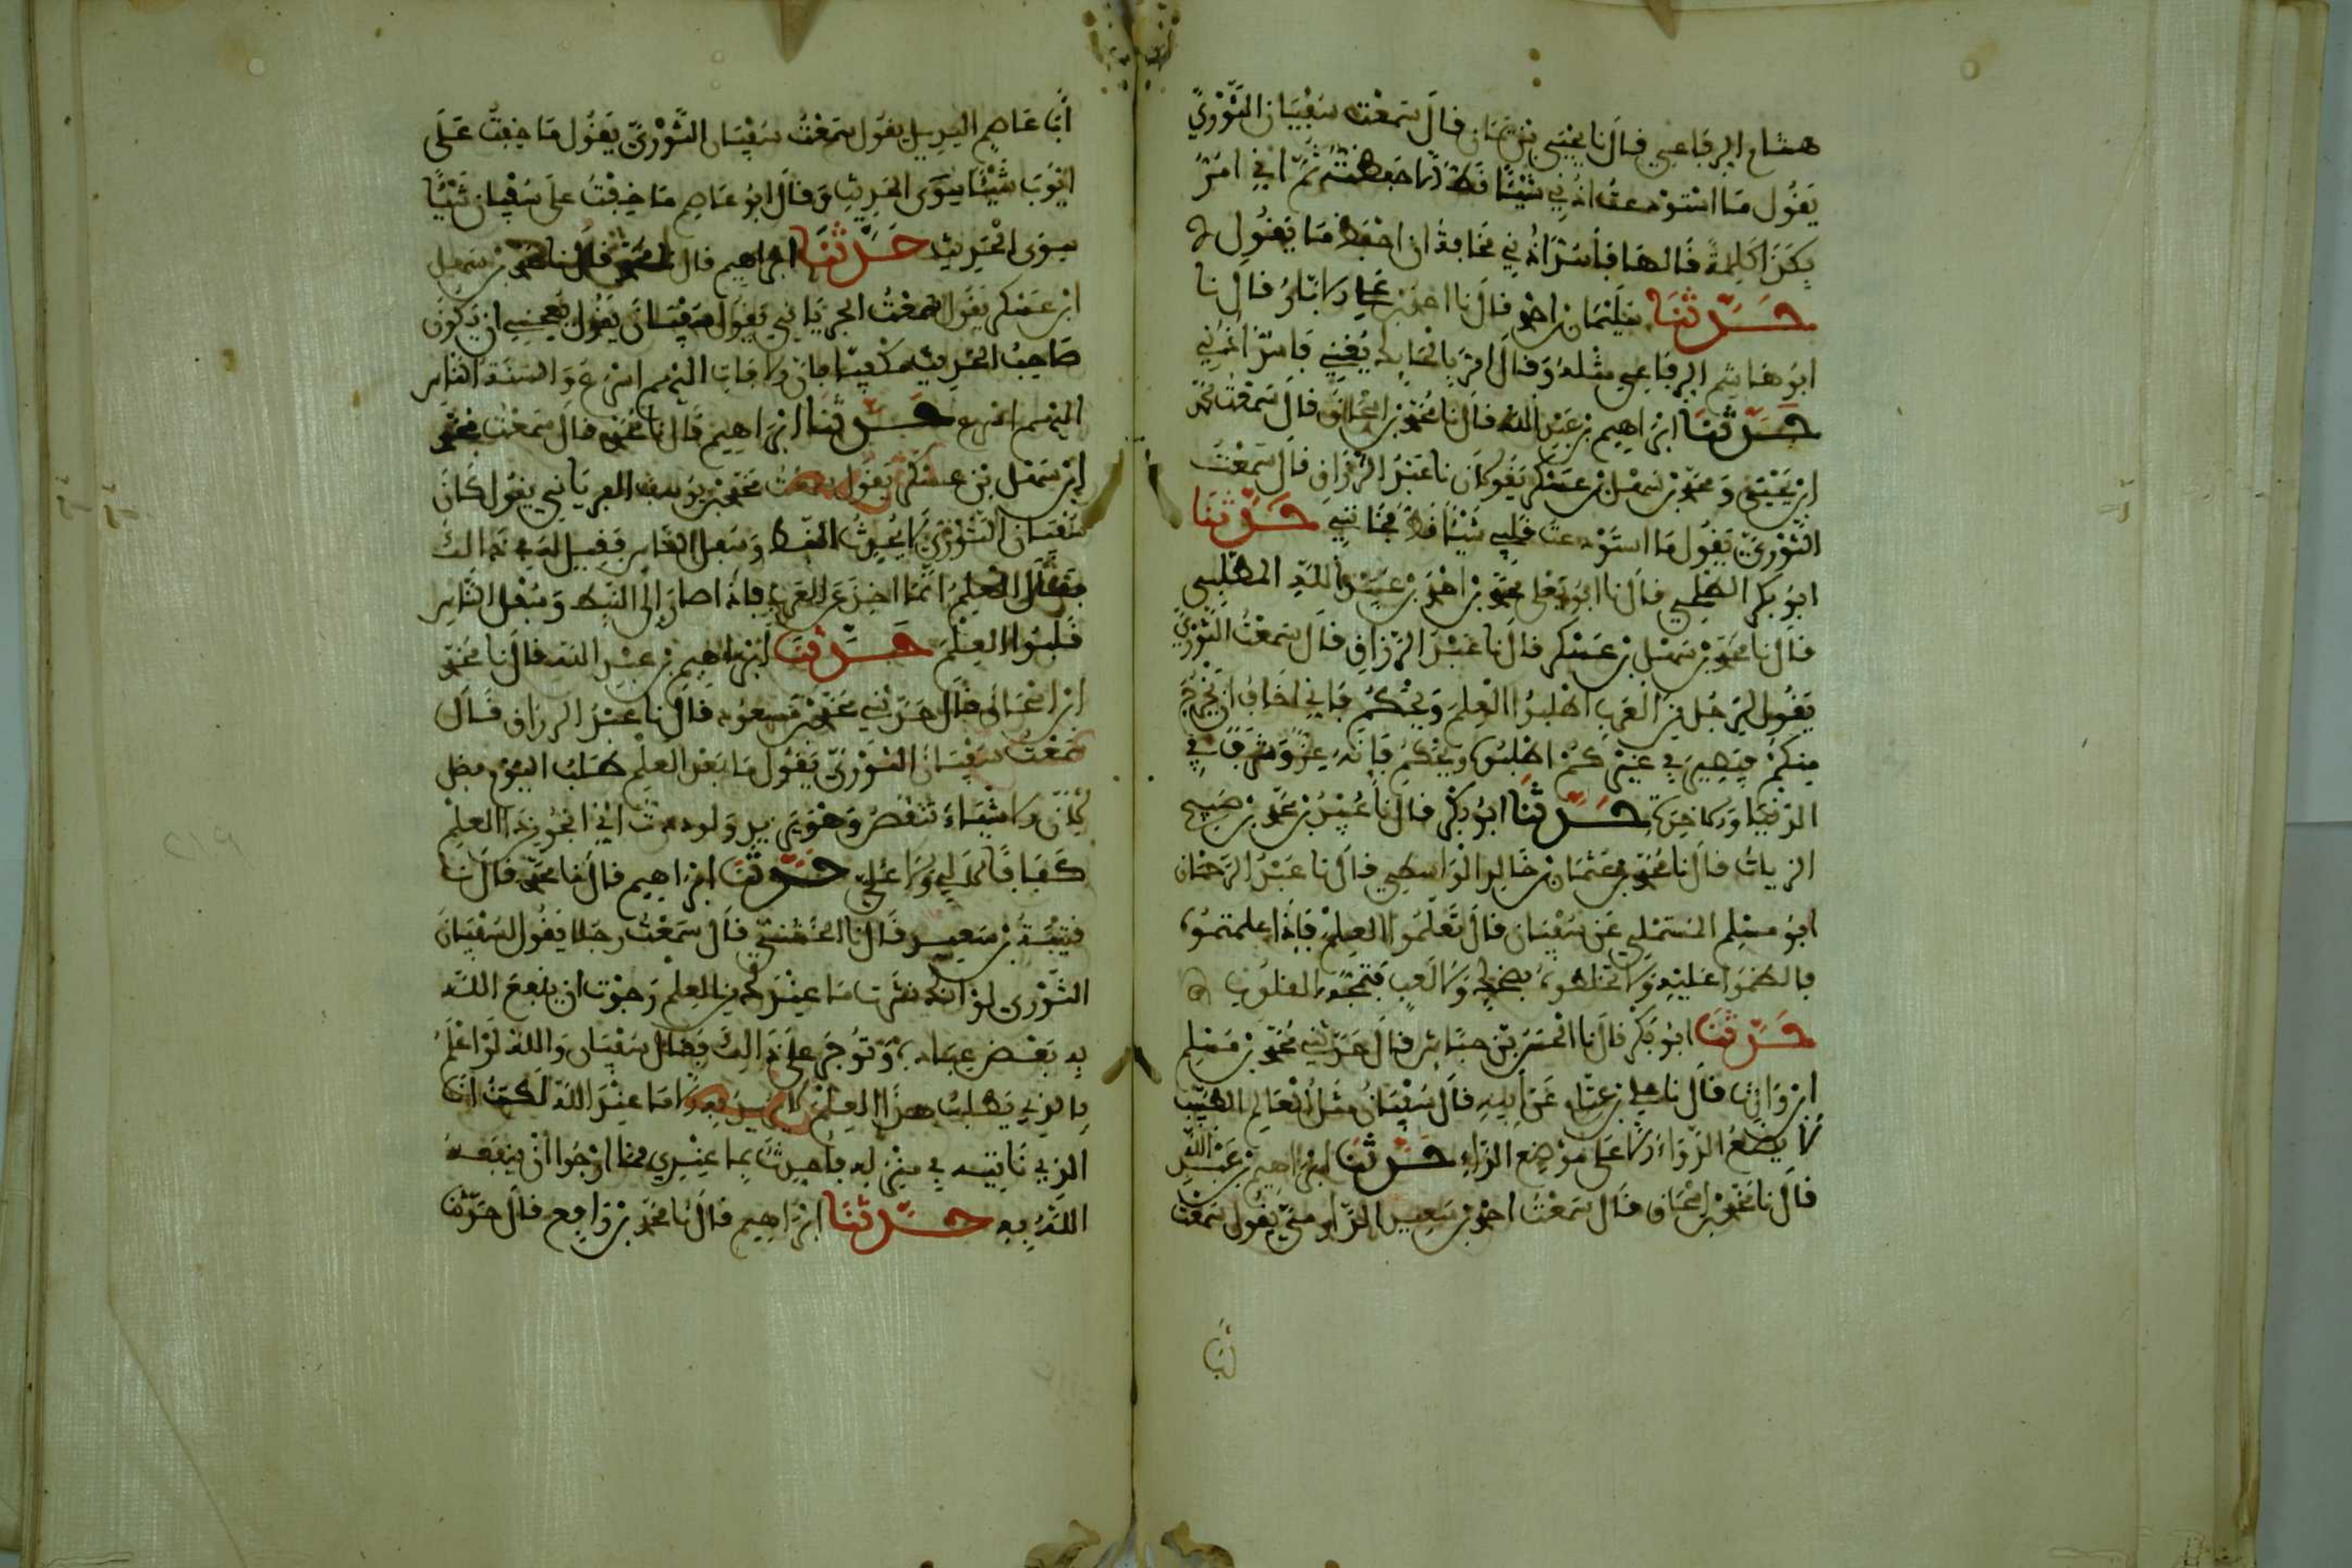 هشام الرفاعي قال نا يحيى بن يمان قال سمعت سفيان الثوري
يقول ما استودعت اذني شيئا قط الا حفظته ثم اني امر
بكذا كلمة قالها فاسد اذني مخافة ان احفظ ما يقول
حدثنا سليمان بن احمد قال نا احمد بن علي الابار قال نا
ابو هشام الرفاعي مثله وقال امر بالحايك يغني فاسد اذني
حدثنا ابراهيم بن عبد الله قال نا محمد بن اسحاق قال سمعت محمد
ابن يحيى ومحمد بن سهل بن عسكر يقولان نا عبد الرزاق قال سمعت
الثوري يقول ما استودعت قلبي شيئا قط فخانني حدثنا
ابو بكر الطلحي قال نا ابو يعلى محمد بن احمد بن عبيد الله الملطي
قال نا محمد بن سهل بن عسكر قال نا عبد الرزاق قال سمعت الثوري
يقول لرجل من العرب اطلبوا العلم ويحكم فاني اخاف ان يخرج
منكم فيصير في غيركم اطلبوه ويحكم فانه عز وشرف في
الدنيا والاخرة حدثنا ابو بكر قال نا عبيد بن محمد بن صبيح
الزيات قال نا محمد بن عثمان بن خالد الواسطي قال نا عبد الرحمان
ابو مسلم المستملي عن سفيان قال تعلموا العلم فاذا علمتموه
فاكظموا عليه ولا تخلطوه بضحك ولا لعب فتمجه القلوب
حدثنا ابو بكر قال نا الحسن بن حباش قال حدثني محمد بن مسلم
ابن وارة قال نا علي بن عثام عن ابيه قال سفيان مثل العالم الطبيب
لا يضع الدواء الا على موضع الداء حدثنا ابراهيم بن عبد الله
قال نا محمد بن اسحاق قال سمعت احمد بن سعيد الدارمي يقول سمعت
ابا
ابا عاصم النبيل يقول سمعت سفيان الثوري يقول ما خفت على
ايوب شيئا سوى الحديث وقال ابو عاصم ما خفت على سفيان شيئا
سوى الحديث حدثنا ابراهيم قال نا محمد قال نا محمد بن سهل
ابن عسكر يقول سمعت الفريابي يقول سفيان يقول يعجبني ان يكون
صاحب الحديث مكفيا فان الافات اليهم اسرع والسنة الناس
اليهم اسرع حدثنا ابراهيم قال نا محمد قال سمعت محمد
ابن سهل بن عسكر يقول سمعت محمد بن يوسف الفريابي يقول كان
سفيان الثوري لا يحدث النبط وسفل الناس فقيل له في ذالك
فقال العلم انما اخذ عن العرب فاذا صار الى النبط وسفل الناس
قلبوا العلم حدثنا ابراهيم بن عبد الله قال نا محمد
ابن اسحاق قال حدثني محمد بن مسعود قال نا عبد الرزاق قال
سمعت سفيان الثوري يقول ما نعد العلم طلب اليوم فضل
لان الاشياء تنقص وهو يزيد ولوددت اني انجو من هذا العلم
كفافا لا لي ولا علي حدثنا ابراهيم قال نا محمد قال نا
قتيبة بن سعيد قال نا الخنيسي قال سمعت رجلا يقول لسفيان
الثوري لو انك نشرت ما عندك من العلم رجوت ان ينفع الله
به بعض عباده وتوجر على ذالك فقال سفيان والله لو اعلم
بالذي يطلب هذا العلم لا يريد به الا ما عند الله لكنت انا
الذي ناتيه في منزله فاحدثه بما عندي مما ارجوا ان ينفعه
الله به حدثنا ابراهيم قال نا محمد بن رافع قال حدثنا